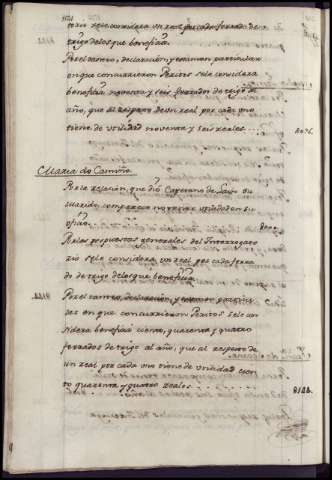 tario sele considera un real por cada ferrado de
trigo de los que beneficia.
Por el tanteo, declarazion, y examen particular
en que conuinieron Peritos se le considera
beneficiar noventa y seis ferrados de trigo al
año, que al respecto de un real por cada uno
tiene de utilidad noventa y seis reales
Maria do Camiño
Por la relacion, que dió Cayetano de su
marido, comparecio no tener utilidad en su
oficio
Por las respuestas generales del Interrogato
rio sele considera un real por cada ferra
do de trigo de los que beneficia
Por el tanteo, declarazion, y examen particu
lar en que conuinieron Peritos sele con
sidera beneficiar ciento, quarenta y quatro
ferrados de trigo al año, que al respecto de
un real por cada uno tiene de utilidad cien
to quarenta y quatro reales